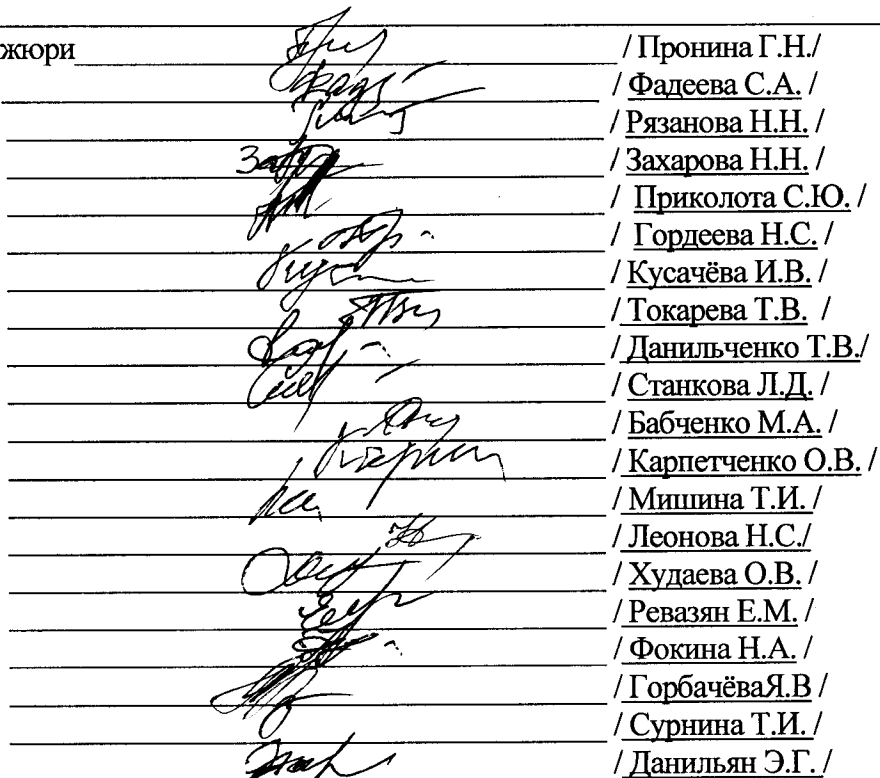 жюри / Пронина Г.Н./
/ Фадеева С.А. /
/ Рязанова Н.Н. /
/ Захарова Н.Н. /
/ Приколота С.Ю. /
/ Гордеева Н.С. /
/ Кусачёва И.В. /
/ Токарева Т.В. /
/ Данильченко Т.В./
/ Станкова Л.Д. /
/ Бабченко М.А. /
/ Карпетченко О.В. /
/ Мишина Т.И. /
/ Леонова Н.С./
/ Худаева О.В. /
/ Ревазян Е.М. /
/ Фокина Н.А. /
/ ГорбачёваЯ.В /
/ Сурнина Т.И. /
/ Данильян Э.Г. /